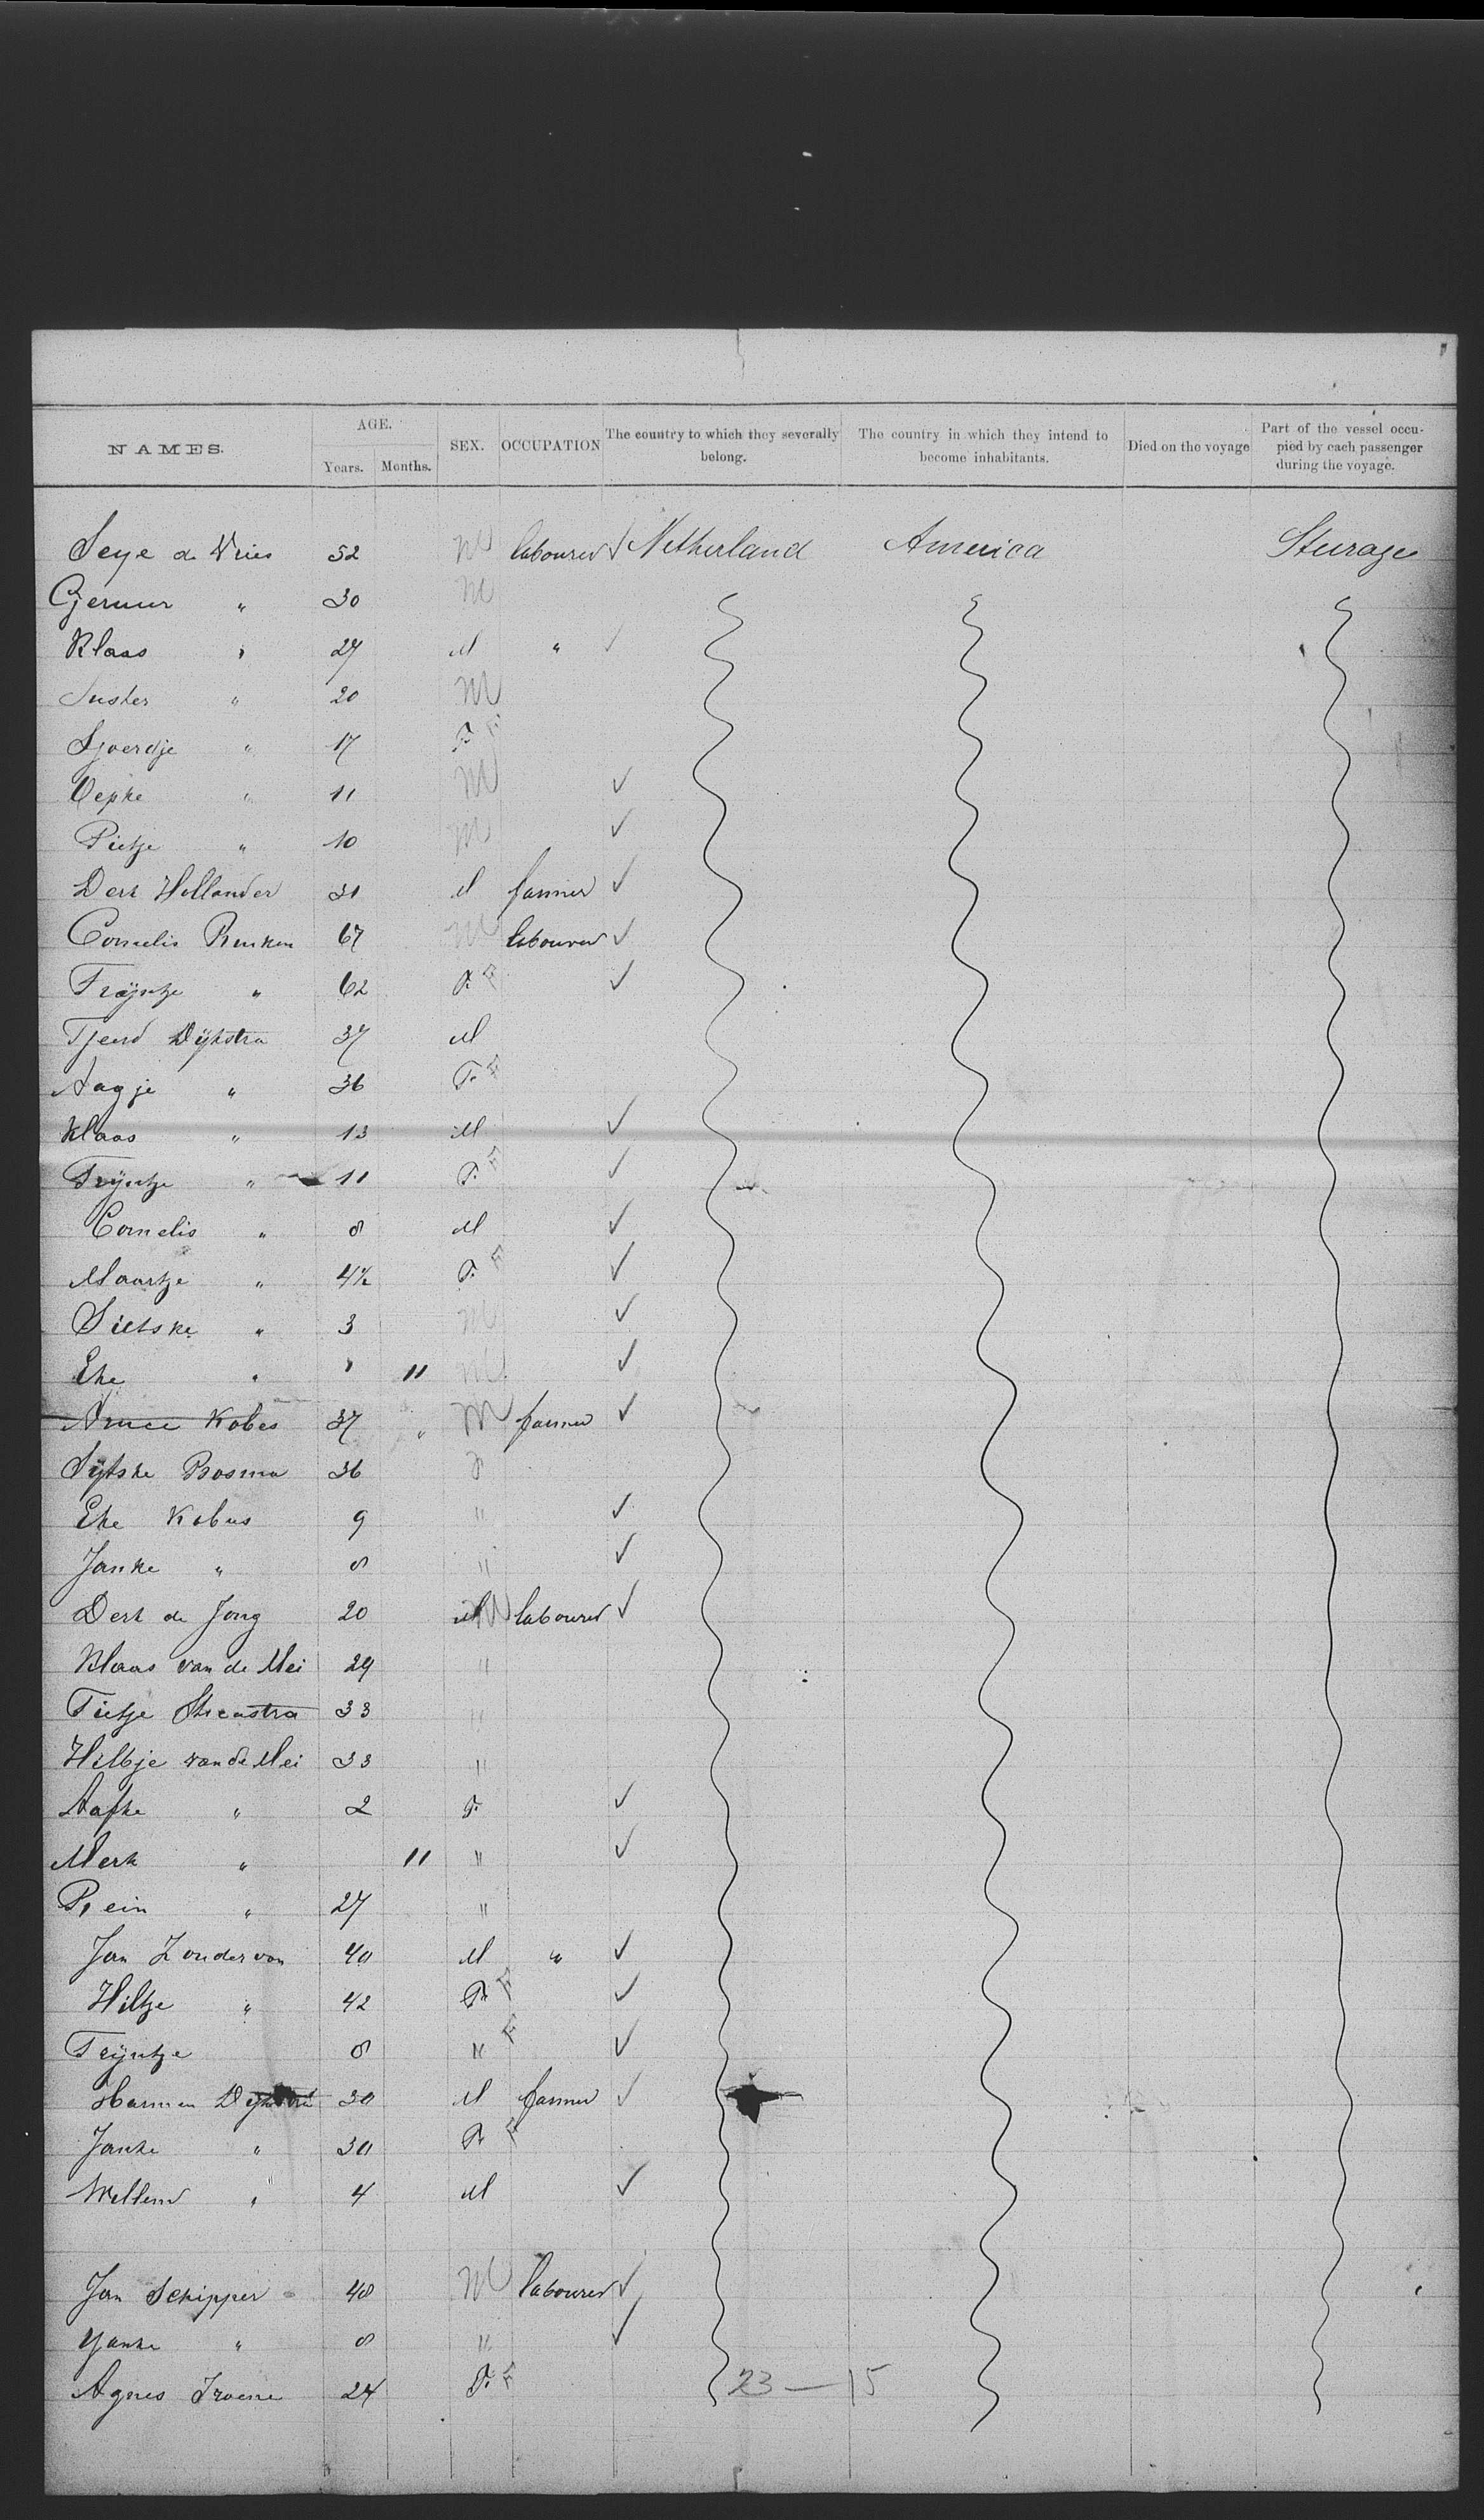 NAMES. AGE. Years. Months. SEX. OCCUPATION The country to which they severally belong. The country in which they intend to become inhabitants. Died on the voyage Part of the vessel occupied by each passenger during the voyage.
Seye de Vries 52 M labourer ✓ Netherland America Steerage
30 M
Klaas " 27 M " ✓
" 20 M
Sjoerdje " 17 F. F
Oepke " 11 M ✓
Pietje " 10 M ✓
Derk Hollander 31 M farmer ✓
Cornelis 67 M labourer ✓
Trÿntje " 62 F. F ✓
Tjeerd Dÿkstra 37 M
Aagje " 36 F. F
Klaas " 13 M ✓
Trÿntje " 11 F. F ✓
Cornelis " 8 M ✓
Maartje " 4½ F. F ✓
Sietske " 3 M ✓
Eke " " 11 M ✓
Kobes 37 " M farmer ✓
Sÿtske Bosma 36
Eke Kobus 9 " ✓
Janke " 8 " ✓
Derk de Jong 20 M labourer ✓
Klaas van de Mei 29 "
Tietje 33 "
Hiltje van de Mei 33 "
Aafke " 2 F. ✓
Merk " 11 " ✓
Rein " 27 "
Jan Zondervan 40 M " ✓
Hiltje " 42 F. F ✓
Trÿntje 8 " F ✓
Harmen Dÿkstra 30 M farmer ✓
Janke " 30 F. F
Willem " 4 M ✓
Jan Schipper 48 M labourer ✓
Yanke " 8 " ✓
Agnes 24 F. F 23 — 15